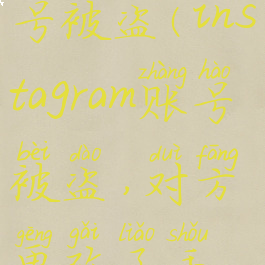 号被盗(ins
zhàng hào
tagram账号
bèi dào duì fāng
被盗，对方
gēng gǎi liǎo shǒu
更改了手